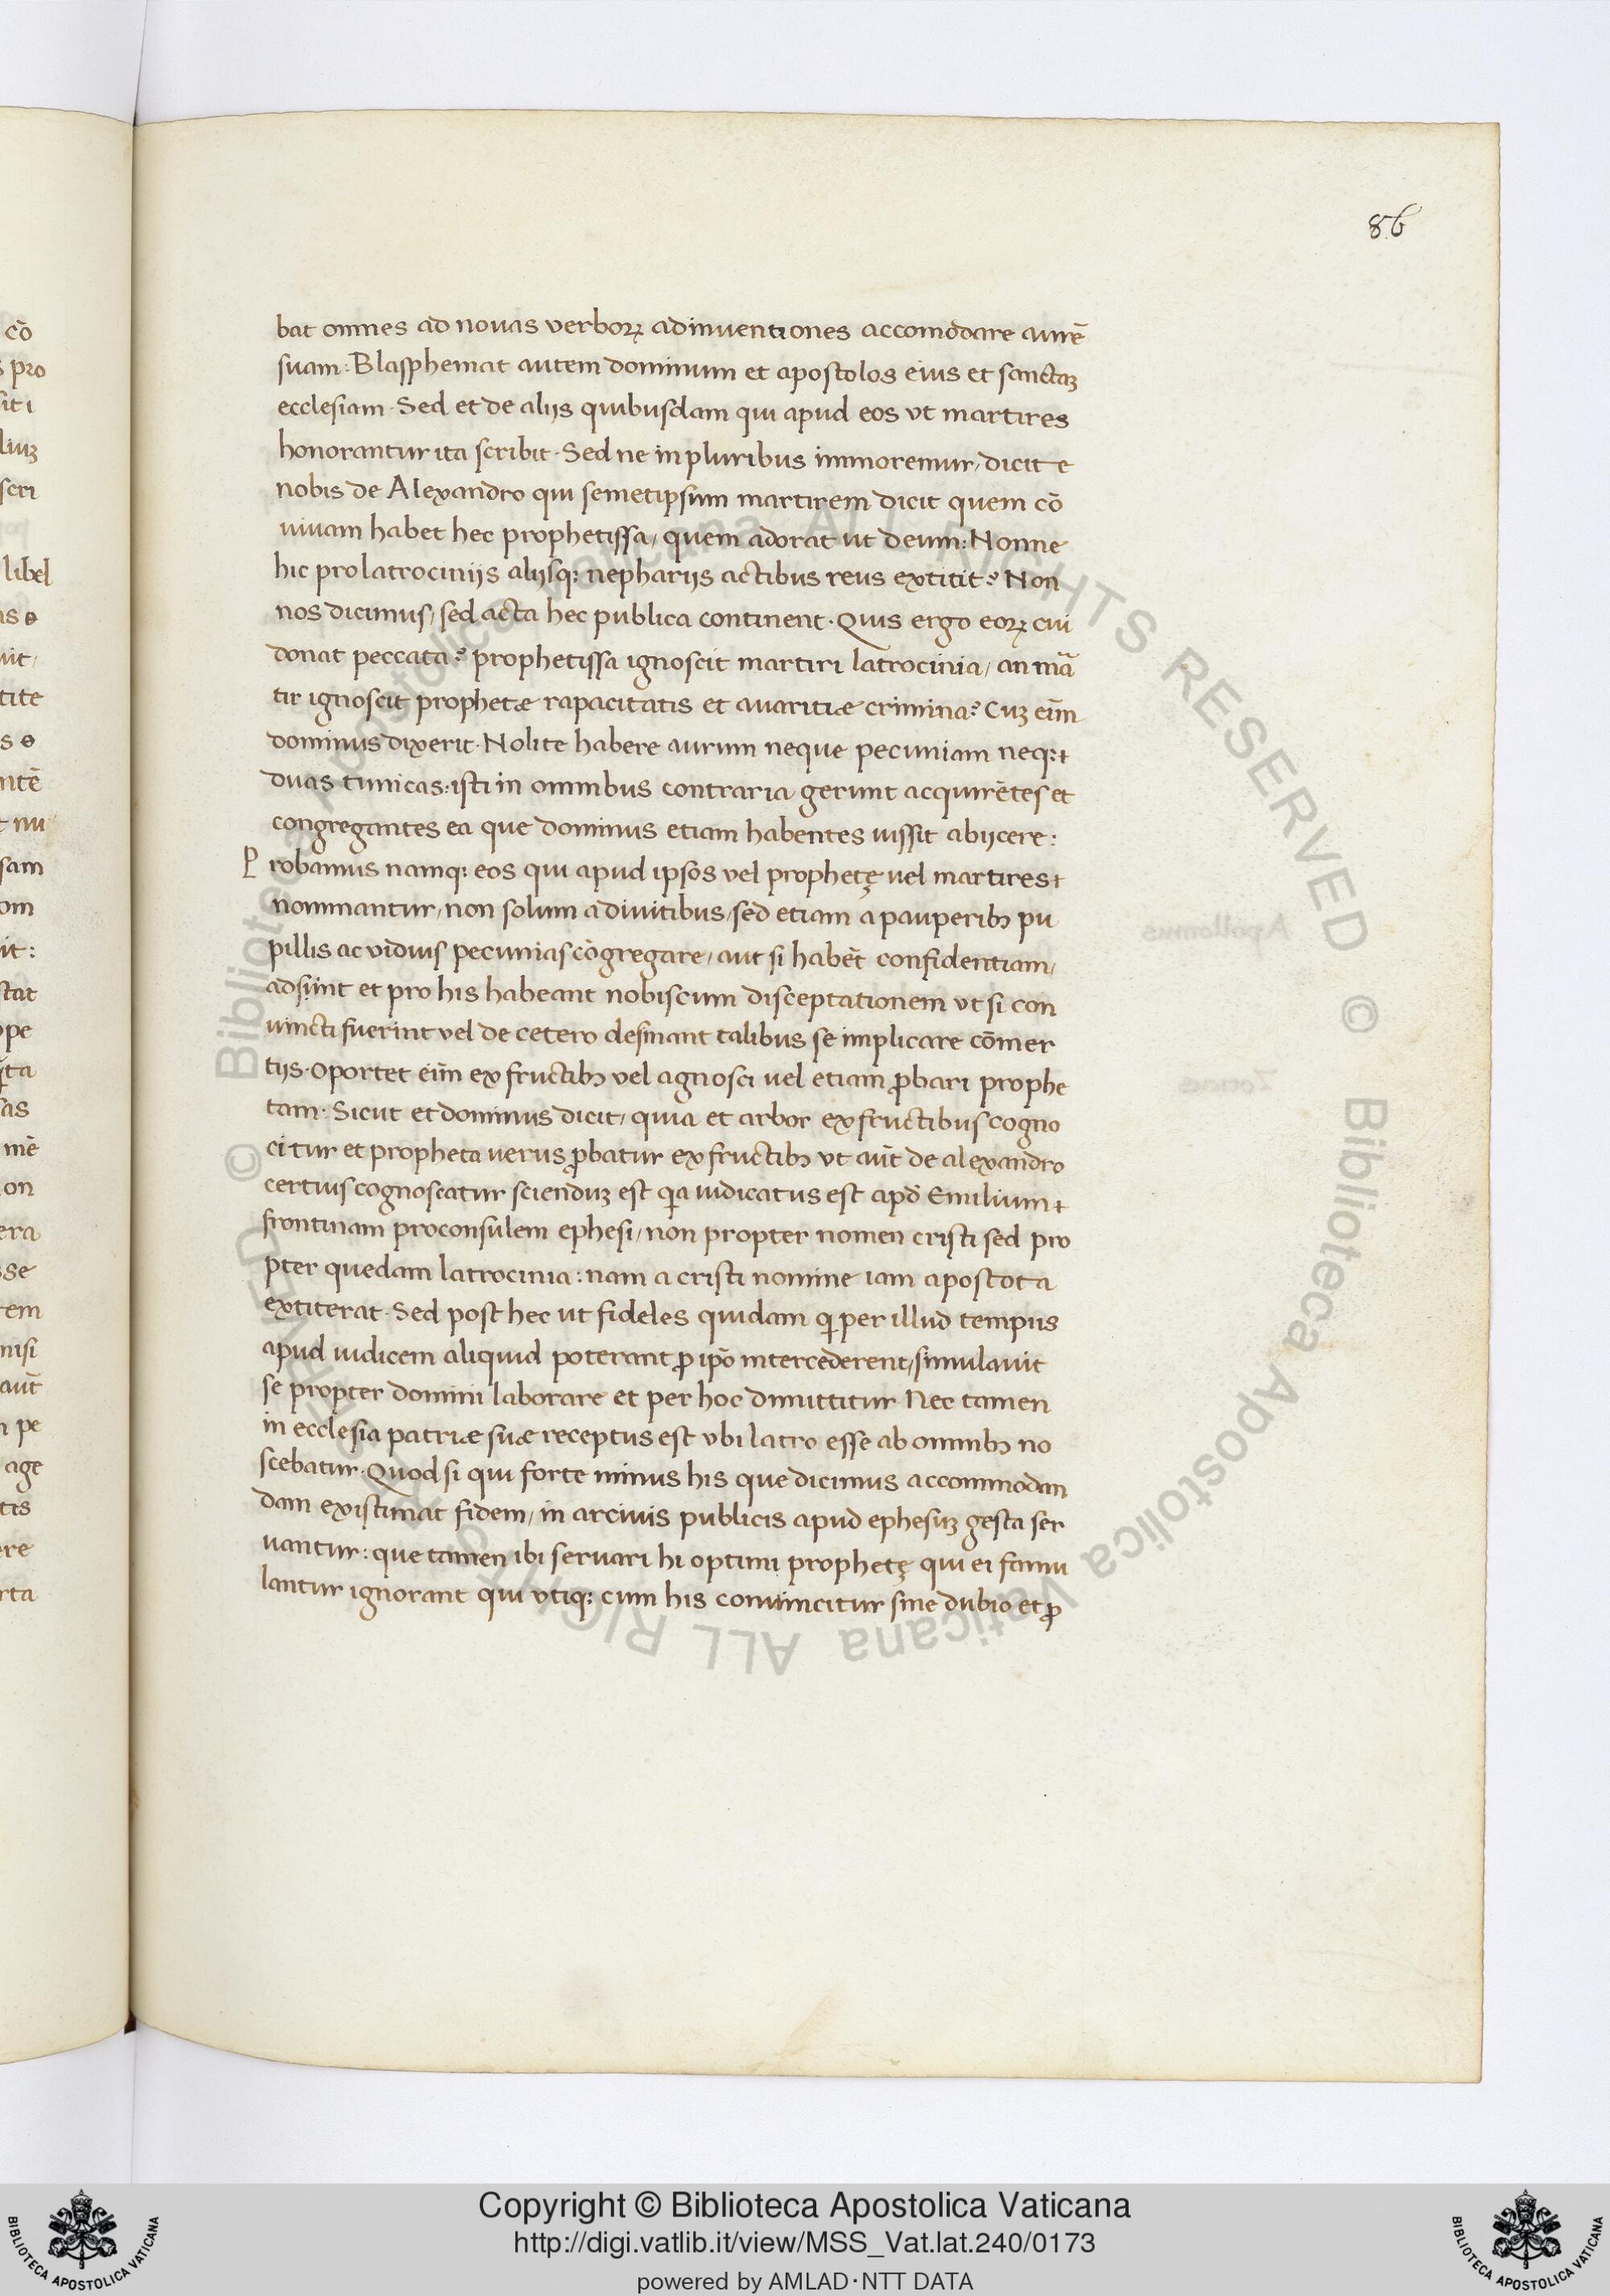 86
bat omnes ad novas verborꝝ adinventiones accomodare aurē
suam: Blasphemat autem dominum et apostolos eius et sanctaꝫ
ecclesiam · Sed et de aliis quibusdam qui apud eos vt martires
honorantur ita scribit · Sed ne in pluribus immoremur / dicit e
nobis de Alexandro qui semetipsum martirem dicit quem cō
uiuam habet hec prophetissa / quem adorat ut deum: Nonne
hic pro latrociniis aliisq; nephariis actibus reus extitit? Non
nos dicimus / sed acta hec publica continent · Quis ergo eorꝝ cui
donat peccata? prophetissa ignoscit martiri latrocinia / an mā
tir ignoscit prophetæ rapacitatis et avaritiæ crimina? Cuꝫ eīm
dominus dixerit · Nolite habere aurum neque pecuniam neq;
duas tunicas: isti in omnibus contraria gerunt acquirētes et
congregantes ea que dominus etiam habentes iussit abiicere:
Probamus namq; eos qui apud ipsos vel prophetę uel martires
nominantur / non solum a divitibus / sed etiam a pauperibꝫ pu
pillis ac viduis pecunias cōgregare / aut si habēt confidentiam /
adsunt et pro his habeant nobiscum disceptationem vt si con
uincti fuerint vel de cetero desinant talibus se implicare cōmer
tiis · Oportet eīm ex fructibꝫ vel agnosci uel etiam ꝓbari prophe
tam · Sicut et dominus dicit / quia et arbor ex fructibus cogno
citur et propheta uerus ꝓbatur ex fructibꝫ vt aūt de alexandro
certius cognoscatur scienduꝫ est qa iudicatus est apd Emilium
frontinam proconsulem ephesi / non propter nomen cristi sed pro
pter quedam latrocinia: nam a cristi nomine iam apostota
extiterat · Sed post hec ut fideles quidam qi per illud tempus
apud iudicem aliquid poterant ꝓ ipō intercederent / simulavit
se propter domini laborare et per hoc dimittitur Nec tamen
in ecclesia patriæ suæ receptus est vbi latro esse ab omnibꝫ no
scebatur · Quod si qui forte minus his que dicimus accommodan
dam existimat fidem / in arcivis publicis apud ephesuꝫ gesta ser
vantur: que tamen ibi servari hi optimi prophetę qui ei famu
lantur ignorant qui vtiq; cum his convincitur sine dubio et ꝓ
cō
pro
libel
Copyright © Biblioteca Apostolica Vaticana
http://digi.vatlib.it/view/MSS_Vat.lat.240/0173
powered by AMLAD·NTT DATA
BIBLIOTECA APOSTOLICA VATICANA
BIBLIOTECA APOSTOLICA VATICANA
© Biblioteca Apostolica Vaticana ALL RIGHTS RESERVED © Biblioteca Apostolica Vaticana ALL RIGHTS RESERVED